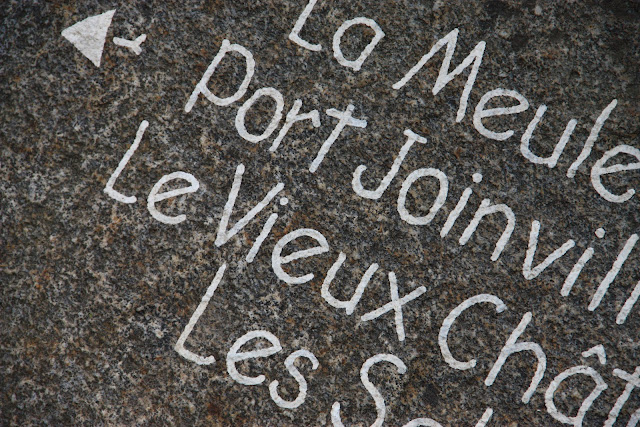 La Meule
Port Joinvill
Le Vieux Chât
Les S